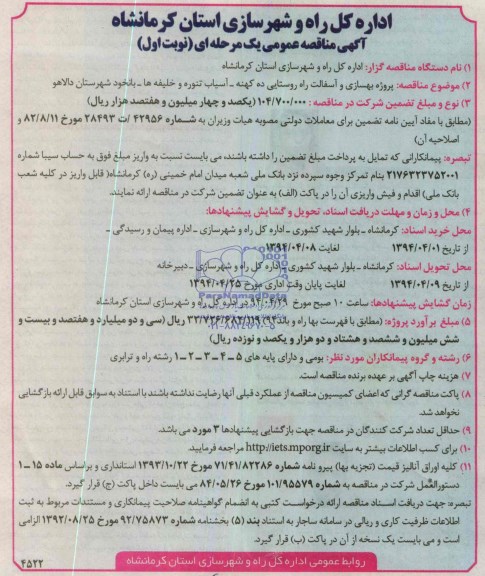 اداره کل راه و شهرسازی استان کرمانشاه
آگهی مناقصه عمومی یک مرحله ای (نوبت اول)
۱) نام دستگاه مناقصه گزار: اداره کل راه و شهرسازی استان کرمانشاه
۲) موضوع مناقصه: پروژه بهسازی و آسفالت راه روستایی ده کهنه ـ آسیاب تنوره و خلیفه ها ـ بانخود شهرستان دالاهو
۳) نوع و مبلغ تضمین شرکت در مناقصه : ۱۰۴/۷۰۰/۰۰۰ (یکصد و چهار میلیون و هفتصد هزار ریال)
(مطابق با مفاد آیین نامه تضمین برای معاملات دولتی مصوبه هیات وزیران به شماره ۴۲۹۵۶ /ت ۲۸۴۹۳ مورخ ۸۲/۸/۱۱ و
اصلاحیه آن)
تبصره: پیمانکارانی که تمایل به پرداخت مبلغ تضمین را داشته باشند، می بایست نسبت به واریز مبلغ فوق به حساب سیبا شماره
۲۱۷۶۳۲۳۷۵۲۰۰۱ بنام تمرکز وجوه سپرده نزد بانک ملی شعبه میدان امام خمینی (ره) کرمانشاه( قابل واریز در کلیه شعب
بانک ملی) اقدام و فیش واریزی آن را در پاکت (الف) به عنوان تضمین شرکت در مناقصه ارائه نمایند.
۴) محل و زمان و مهلت دریافت اسناد، تحویل و گشایش پیشنهادها:
محل خرید اسناد: کرمانشاه ـ بلوار شهید کشوری ـ اداره کل راه و شهرسازی ـ اداره پیمان و رسیدگی ـ
از تاریخ ۱۳۹۴/۰۴/۰۱ لغایت ۱۳۹۴/۰۴/۰۸
محل تحویل اسناد: کرمانشاه ـ بلوار شهید کشوری ـ اداره کل راه و شهرسازی ـ دبیرخانه
از تاریخ ۱۳۹۴/۰۴/۰۹ لغایت پایان وقت اداری مورخ ۱۳۹۴/۰۴/۲۵
زمان گشایش پیشنهادها: ساعت ۱۰ صبح مورخ در اداره کل راه و شهرسازی استان کرمانشاه
۵) مبلغ برآورد پروژه: (مطابق با فهرست بها راه و باند ۹۴) ۳۲/۷۲۶/۶۸۲/۱۱۹ ریال (سی و دو میلیارد و هفتصد و بیست و
شش میلیون و ششصد و هشتاد و دو هزار و یکصد و نوزده ریال)
۶) رشته و گروه پیمانکاران مورد نظر: بومی و دارای پایه های ۵ ـ ۴ ـ ۳ ـ ۲ ـ ۱ رشته راه و ترابری
۷) هزینه چاپ آگهی بر عهده برنده مناقصه است.
۸) پاکت مناقصه گرانی که اعضای کمیسیون مناقصه از عملکرد قبلی آنها رضایت نداشته باشند با استناد به سوابق قابل ارائه بازگشایی
نخواهد شد.
۹) حداقل تعداد شرکت کنندگان در مناقصه جهت بازگشایی پیشنهادها ۳ مورد می باشد.
۱۰) برای کسب اطلاعات بیشتر به سایت http://iets.mporg.ir مراجعه فرمایید.
۱۱) کلیه اوراق آنالیز قیمت (تجزیه بها) پیرو نامه شماره ۷۱/۴۱/۸۲۲۸۶ مورخ ۱۳۹۳/۱۰/۲۲ استانداری و براساس ماده ۱۵ ـ ۱
دستورالعمل شرکت در مناقصه به شماره ۱۰۱/۹۵۵۷۹ مورخ ۸۴/۰۵/۲۶ می بایست داخل پاکت (ج) قرار گیرد.
تبصره: جهت دریافت اسناد مناقصه ارائه درخواست کتبی به انضمام گواهینامه صلاحیت پیمانکاری و مستندات مربوط به ثبت
اطلاعات ظرفیت کاری و ریالی در سامانه ساجار به استناد بند (۵) بخشنامه شماره ۹۲/۷۵۸۷۳ مورخ ۱۳۹۲/۰۸/۲۵ الزامی
است و می بایست یک نسخه از آن در پاکت (ب) قرار گیرد.
روابط عمومی اداره کل راه و شهرسازی استان کرمانشاه
۴۵۲۲
ParsNamadData